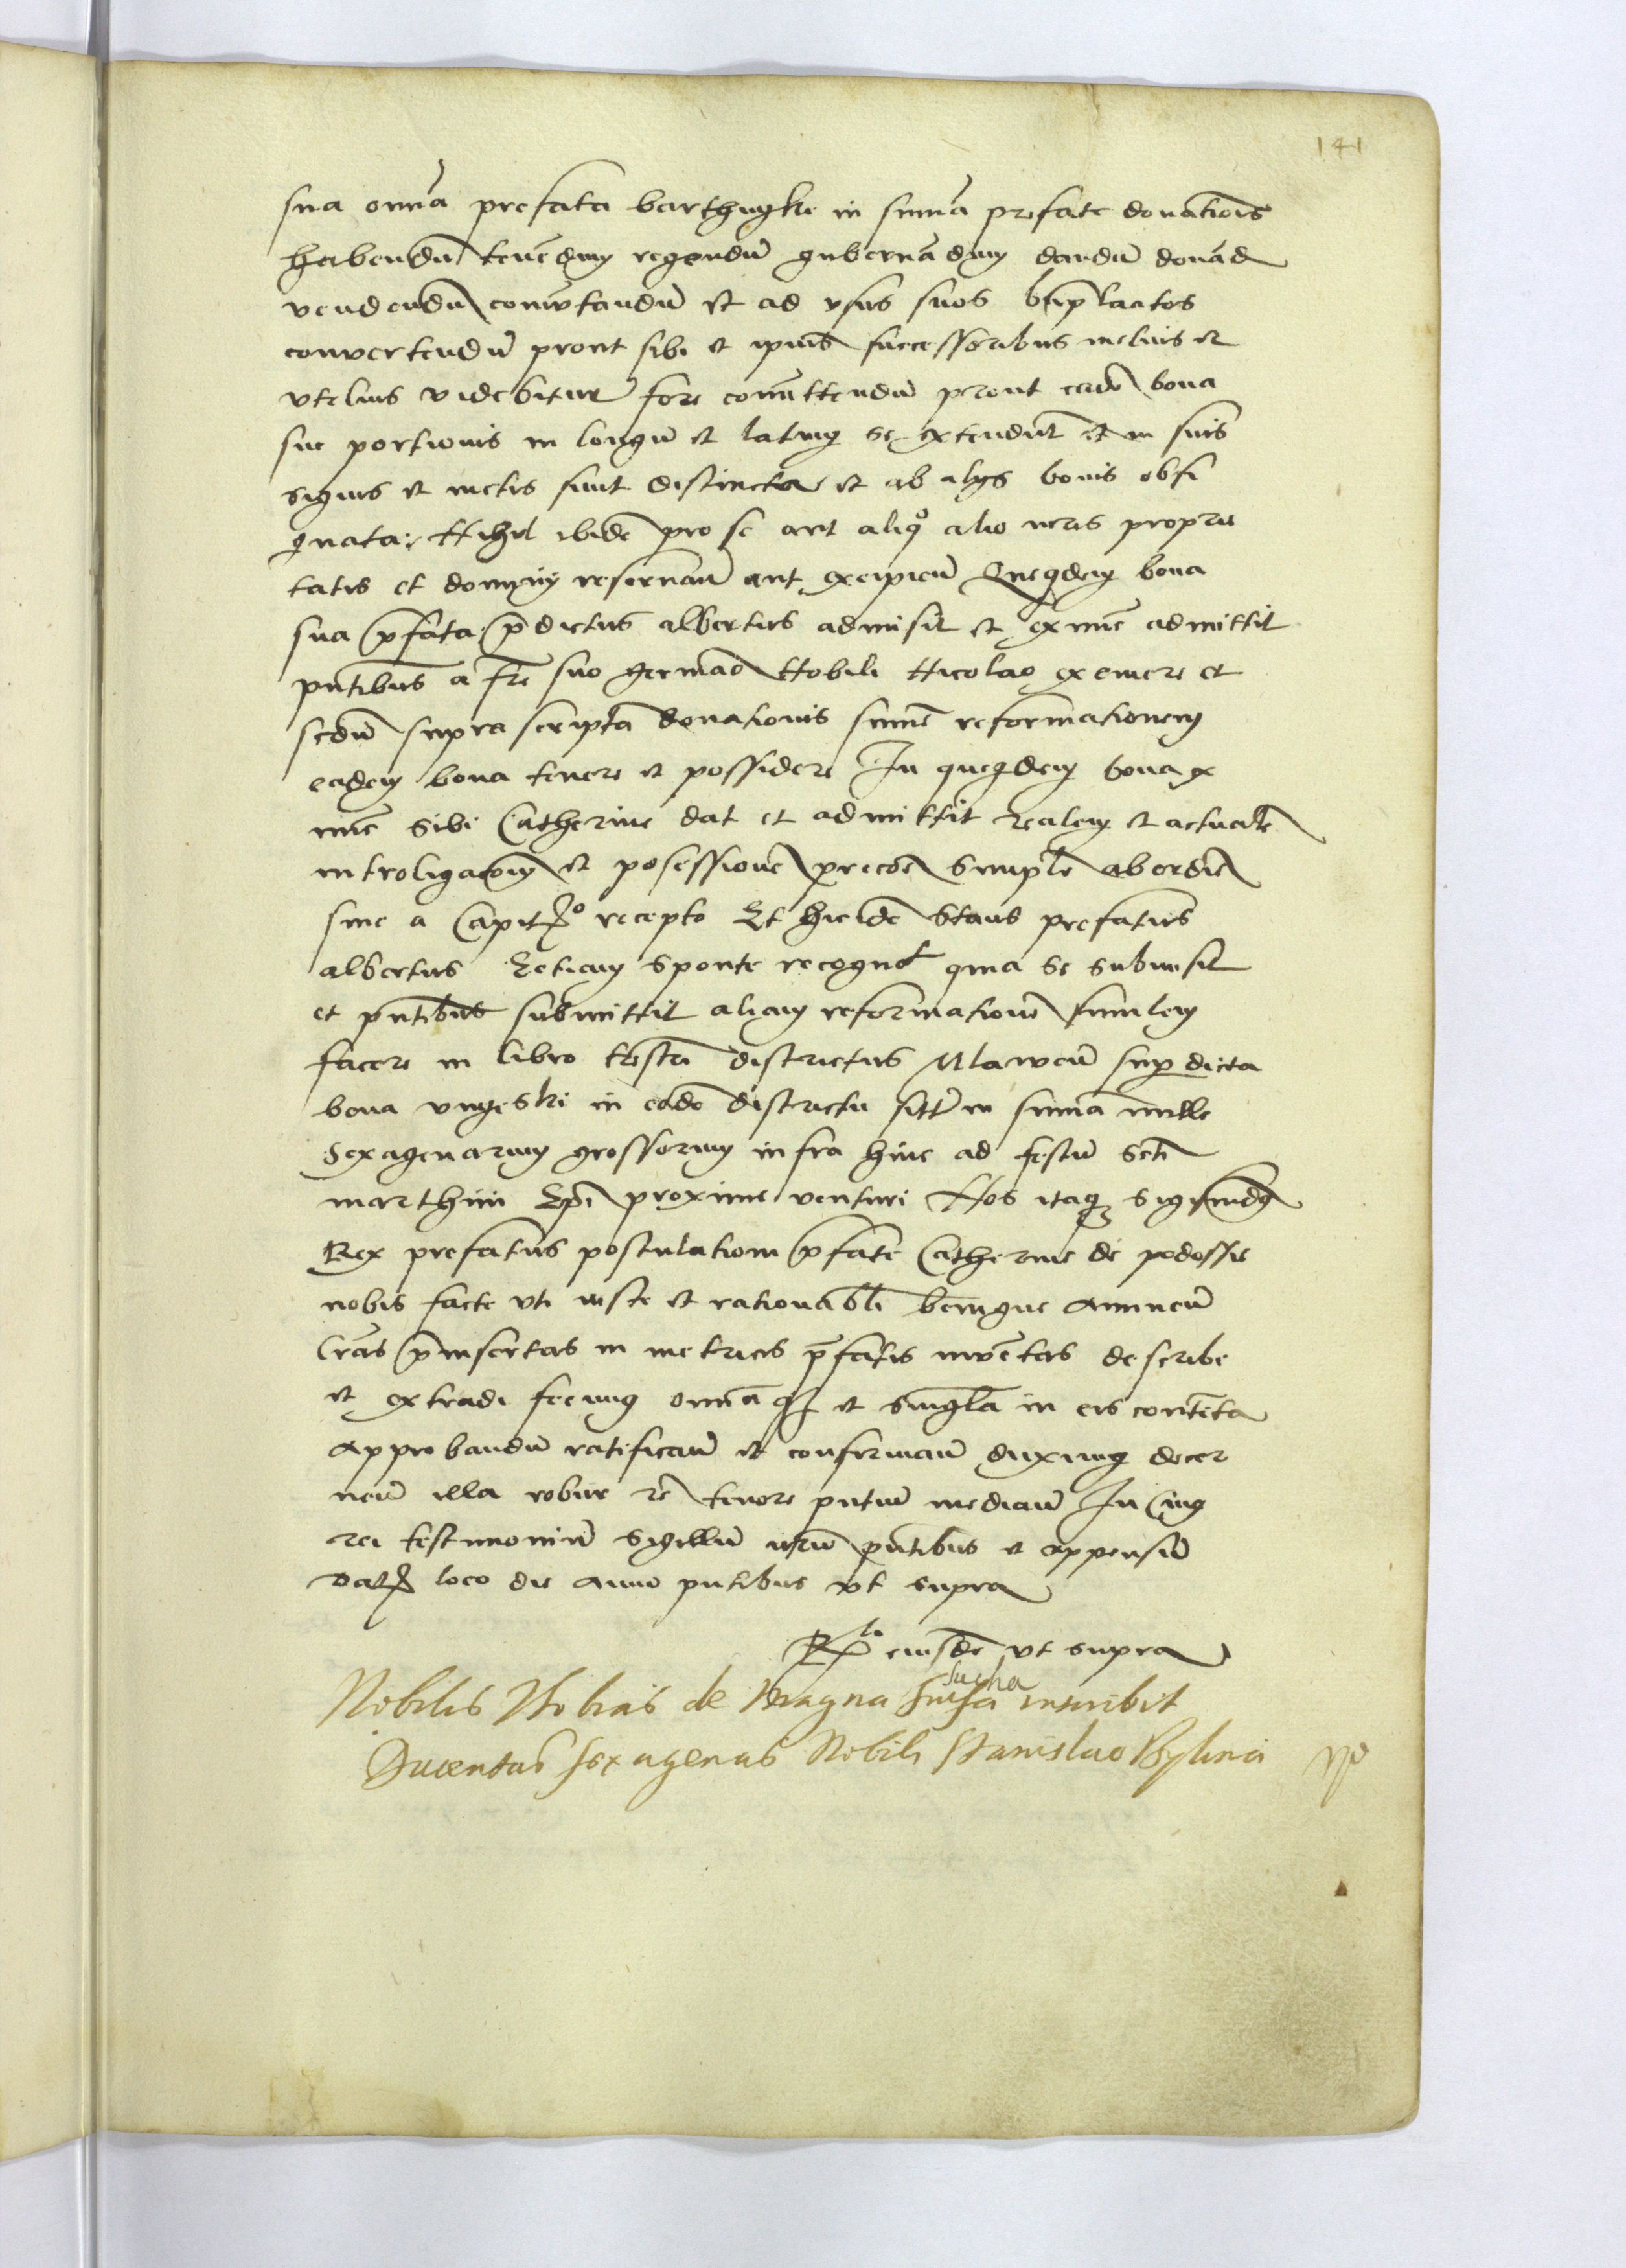 141
sua omĩa prefata barthnyky in sum̃a prefate donatiõis
habendũ tenẽdum regendũ gubernãdum dandũ donãd
vendendũ com̃utandũ et ad vsus suos bñplacitos
convertendũ prout sibi et ipius successoribus melius et
vtilius videbitur fore com̃ittendũ prout eadẽ bona
sue portionis in longũ et latum se extendunt et in suis
signis et metis sunt distincta et ab alys bonis obsi
gnata: Nihil ibidẽ pro se aut aliqᵒ alio iuris proprie
tatis et dominy reseruañ aut excipieñ Queqdem bona
sua p̃fata p̃dictus albertus admisit et ex nũc admittit
pñtibus a fr̃e suo germaõ Nobili Nicolao exemere et
secdũ supra scriptã donationis sum̃e reformationem
eadem bona tenere et possidere In queqdem bona ex
nũc sibi Catherine dat et admittit realem et actualẽ
introligacõem et posessionẽ p recõem simplẽ ab ordie
sine a Capitᵒ recepto Et hic idẽ Stans prefatus
albertus Eciam sponte recognoᵗ quia se submisit
et pñtibus submittit aliam reformationẽ similem
facere in libro trr̃stri districtus Mlawieñ sup dicta
bona vnyeski in eodẽ districtu sitt̃ in sum̃a mille
Sexagenarum grossorum infra hinc ad festũ Scti
marthini Ep̃i proxime venturi Nos itaq Sigismũdus
Rex prefatus postulationi p̃fate Catherine de podossie
nobis facte vti iuste et rationabli benigne annueñ
l̃ras p̃insertas in metricis p̃fatis invẽtas describi
et extradi fecimus om̃ia q et singl̃a in eis contẽta
approbandũ ratificañ et confirmañ duximus decer
neñ illa robur r̃ tenore pñtiũ mediañ In Cuius
rei testimoniũ sigillũ nr̃um pñtibus e appensũ
Dat loco die anno pñtibus vt supra
Rˡᵒ eiusdẽ vt supra
sucha
Nobilis Thobias de Magna Susa inscribit
Ducentas sexagenas Nobili Stanislao Bylina